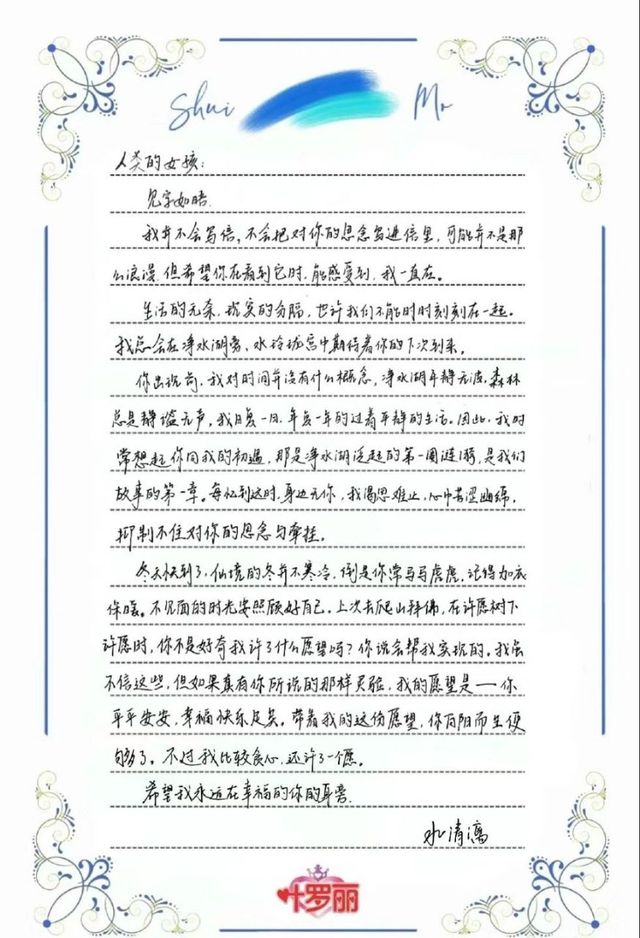 Shui Mo
人类的女孩：
见字如晤.
我并不会写信，不会把对你的思念写进信里，可能并不是那
么浪漫，但希望你在看到它时，能感受到，我一直在。
生活的无奈，现实的分隔，也许我们不能时时刻刻在一起。
我总会在净水湖旁、水玲珑宫中期待着你的下次到来。
你出现前，我对时间并没有什么概念，净水湖平静无波，森林
总是静谧无声，我日复一日，年复一年的过着平静的生活。因此，我时
常想起你同我的初遇，那是净水湖泛起的第一圈涟漪，是我们
故事的第一章。每忆到这时，身边无你，我渴思难止，心中苦涩幽绵，
抑制不住对你的思念与牵挂。
冬天快到了，仙境的冬并不寒冷，倒是你常马马虎虎，记得加衣
保暖。不见面的时光安照顾好自己。上次去爬山拜佛，在许愿树下
许愿时，你不是好奇我许了什么愿望吗？你说会帮我实现的。我虽
不信这些，但如果真有你所说的那样灵验，我的愿望是——你
平平安安，幸福快乐足矣。带着我的这份愿望，你向阳而生便
够了。不过我比较贪心，还许了一个愿。
希望我永远在幸福的你的身旁.
水清漓
叶罗丽